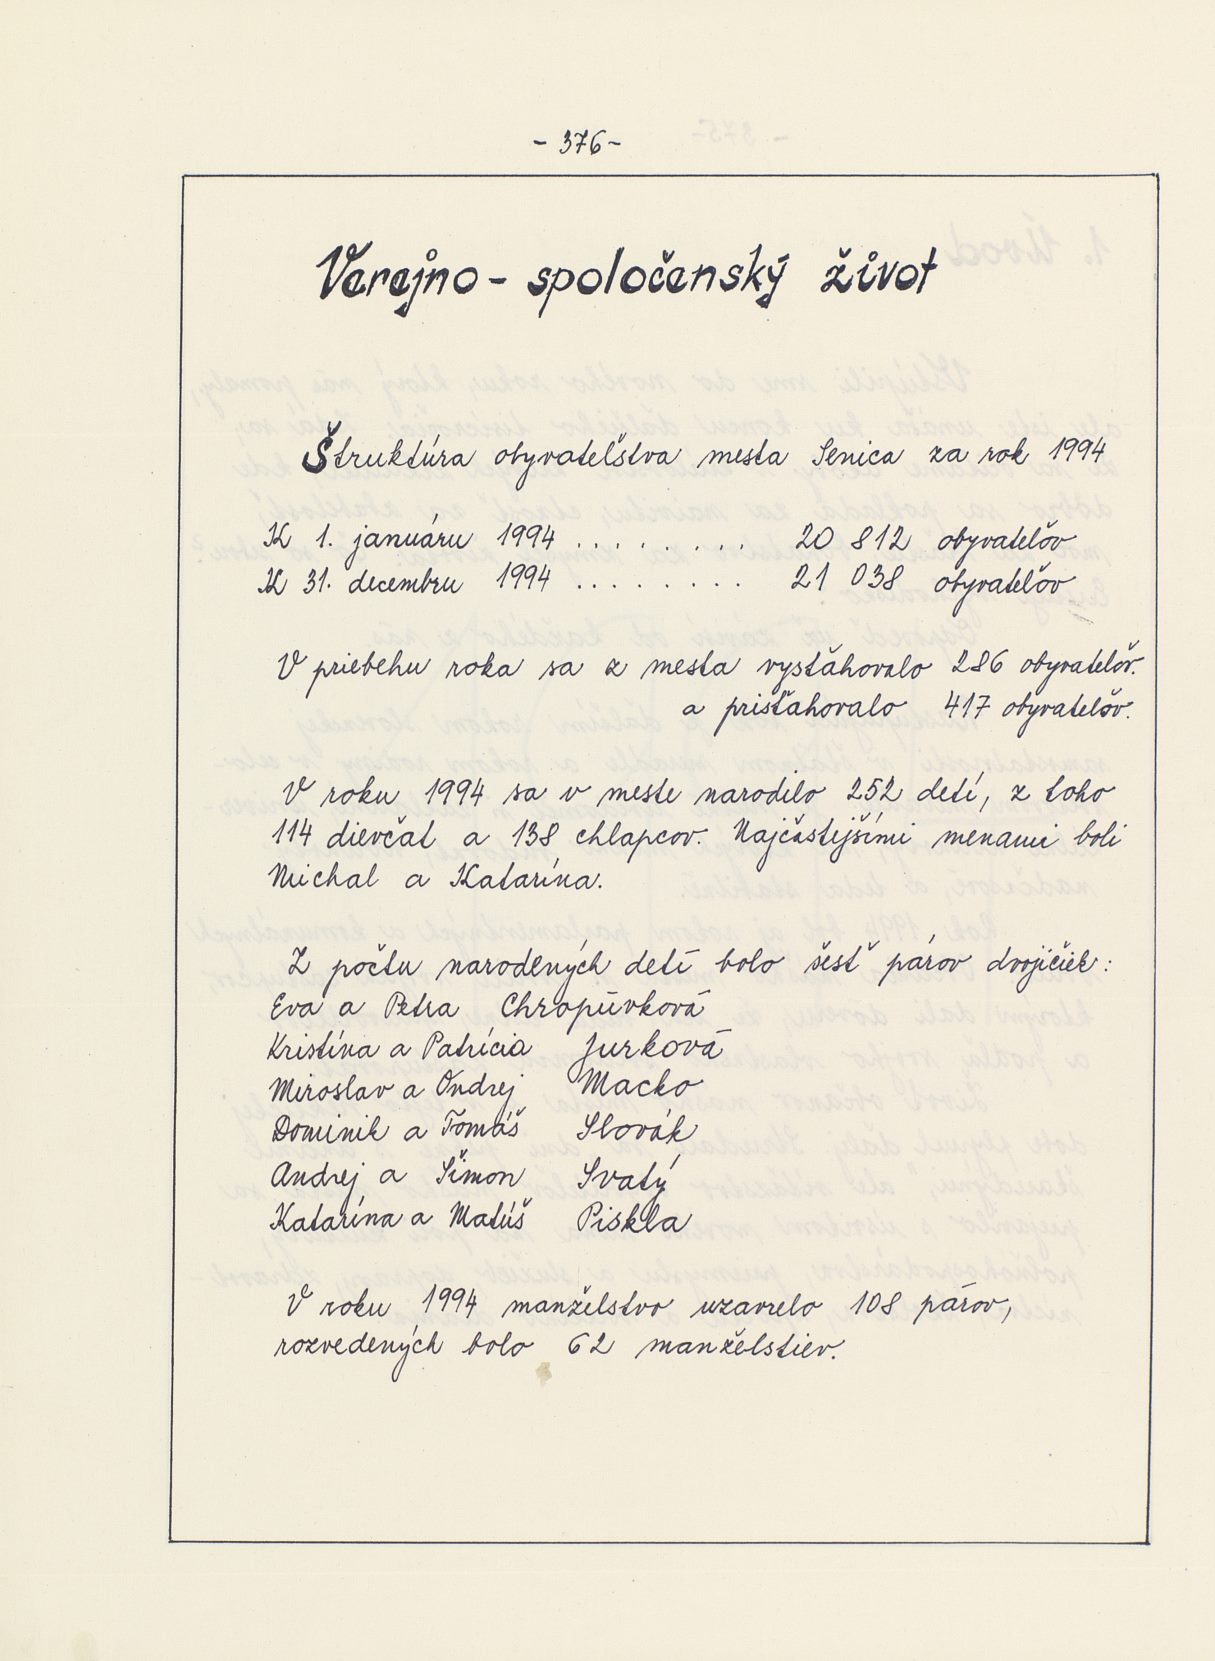 - 376 -
Verejno - spoločenský život
Štruktúra obyvateľstva mesta Senica za rok 1994
K 1. januáru 1994 ........ 20 812 obyvateľov
K 31. decembru 1994 ........ 21 038 obyvateľov
V priebehu roka sa z mesta vysťahovalo 286 obyvateľov.
a prisťahovalo 417 obyvateľov.
V roku 1994 sa v meste narodilo 252 detí, z toho
114 dievčat a 138 chlapcov. Najčastejšími menami boli
Michal a Katarína.
Z počtu narodených detí bolo šesť párov dvojičiek:
Eva a Petra Chropúvková
Kristína a Patrícia Jurková
Miroslav a Ondrej Macko
Dominik a Tomáš Slovák
Andrej a Šimon Svatý
Katarína a Matúš Piskla
V roku 1994 manželstvo uzavrelo 108 párov,
rozvedených bolo 62 manželstiev.